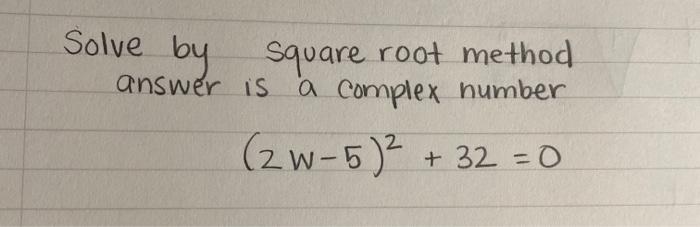 Solve by square root method
answer is a complex number
(2w-5)² + 32 = 0